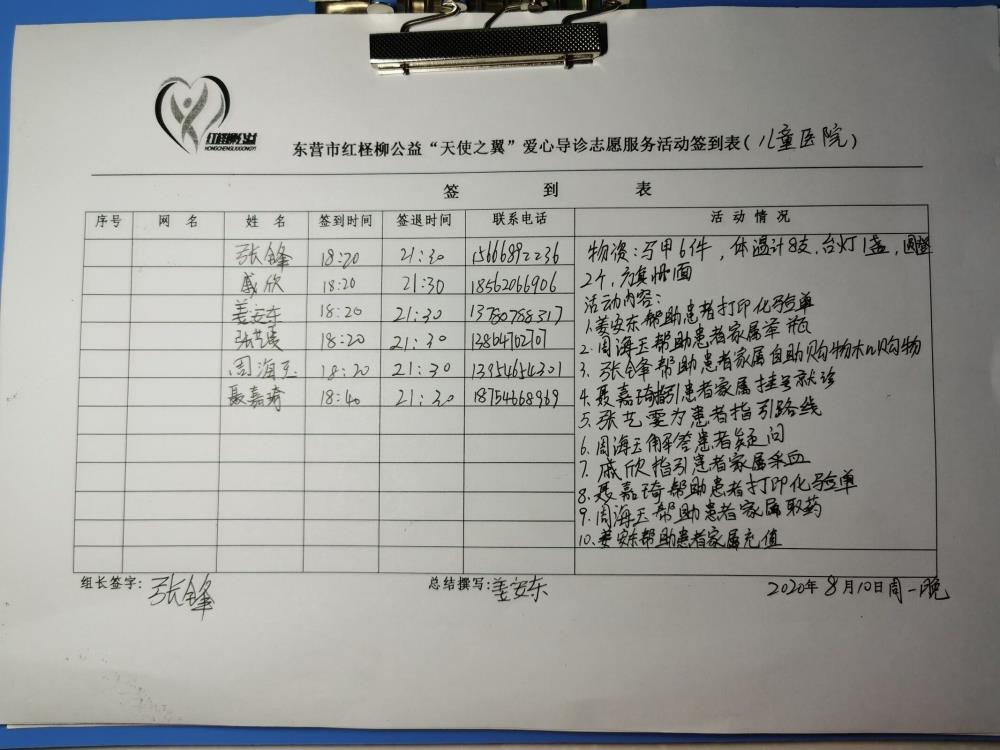 红柽柳公益
HONGCHENGLIUGONGYI
东营市红柽柳公益“天使之翼”爱心导诊志愿服务活动签到表(儿童医院)
签 到 表
序号 网 名 姓 名 签到时间 签退时间 联系电话 活 动 情 况
张锋 18:20 21:30 15666892236
戚欣 18:20 21:30 18562066906
姜安东 18:20 21:30 13780788317
18:20 21:30 13864702707
周海玉 18:20 21:30 13954654301
聂嘉琦 18:40 21:30 18754668969
物资:马甲6件,体温计8支,台灯1盏,圆凳
2个,旗帜1面
活动内容:
1.姜安东帮助患者打印化验单
2.周海玉帮助患者家属拿瓶
3.张锋帮助患者家属自助购物机购物
4.聂嘉琦指引患者家属挂号就诊
5.张艺 为患者指引路线
6.周海玉解答患者疑问
7.戚欣指引患者家属采血
8.聂嘉琦帮助患者打印化验单
9.周海玉帮助患者家属取药
10.姜安东帮助患者家属充值
组长签字:张锋 总结撰写:姜安东 2020年8月10日周一晚